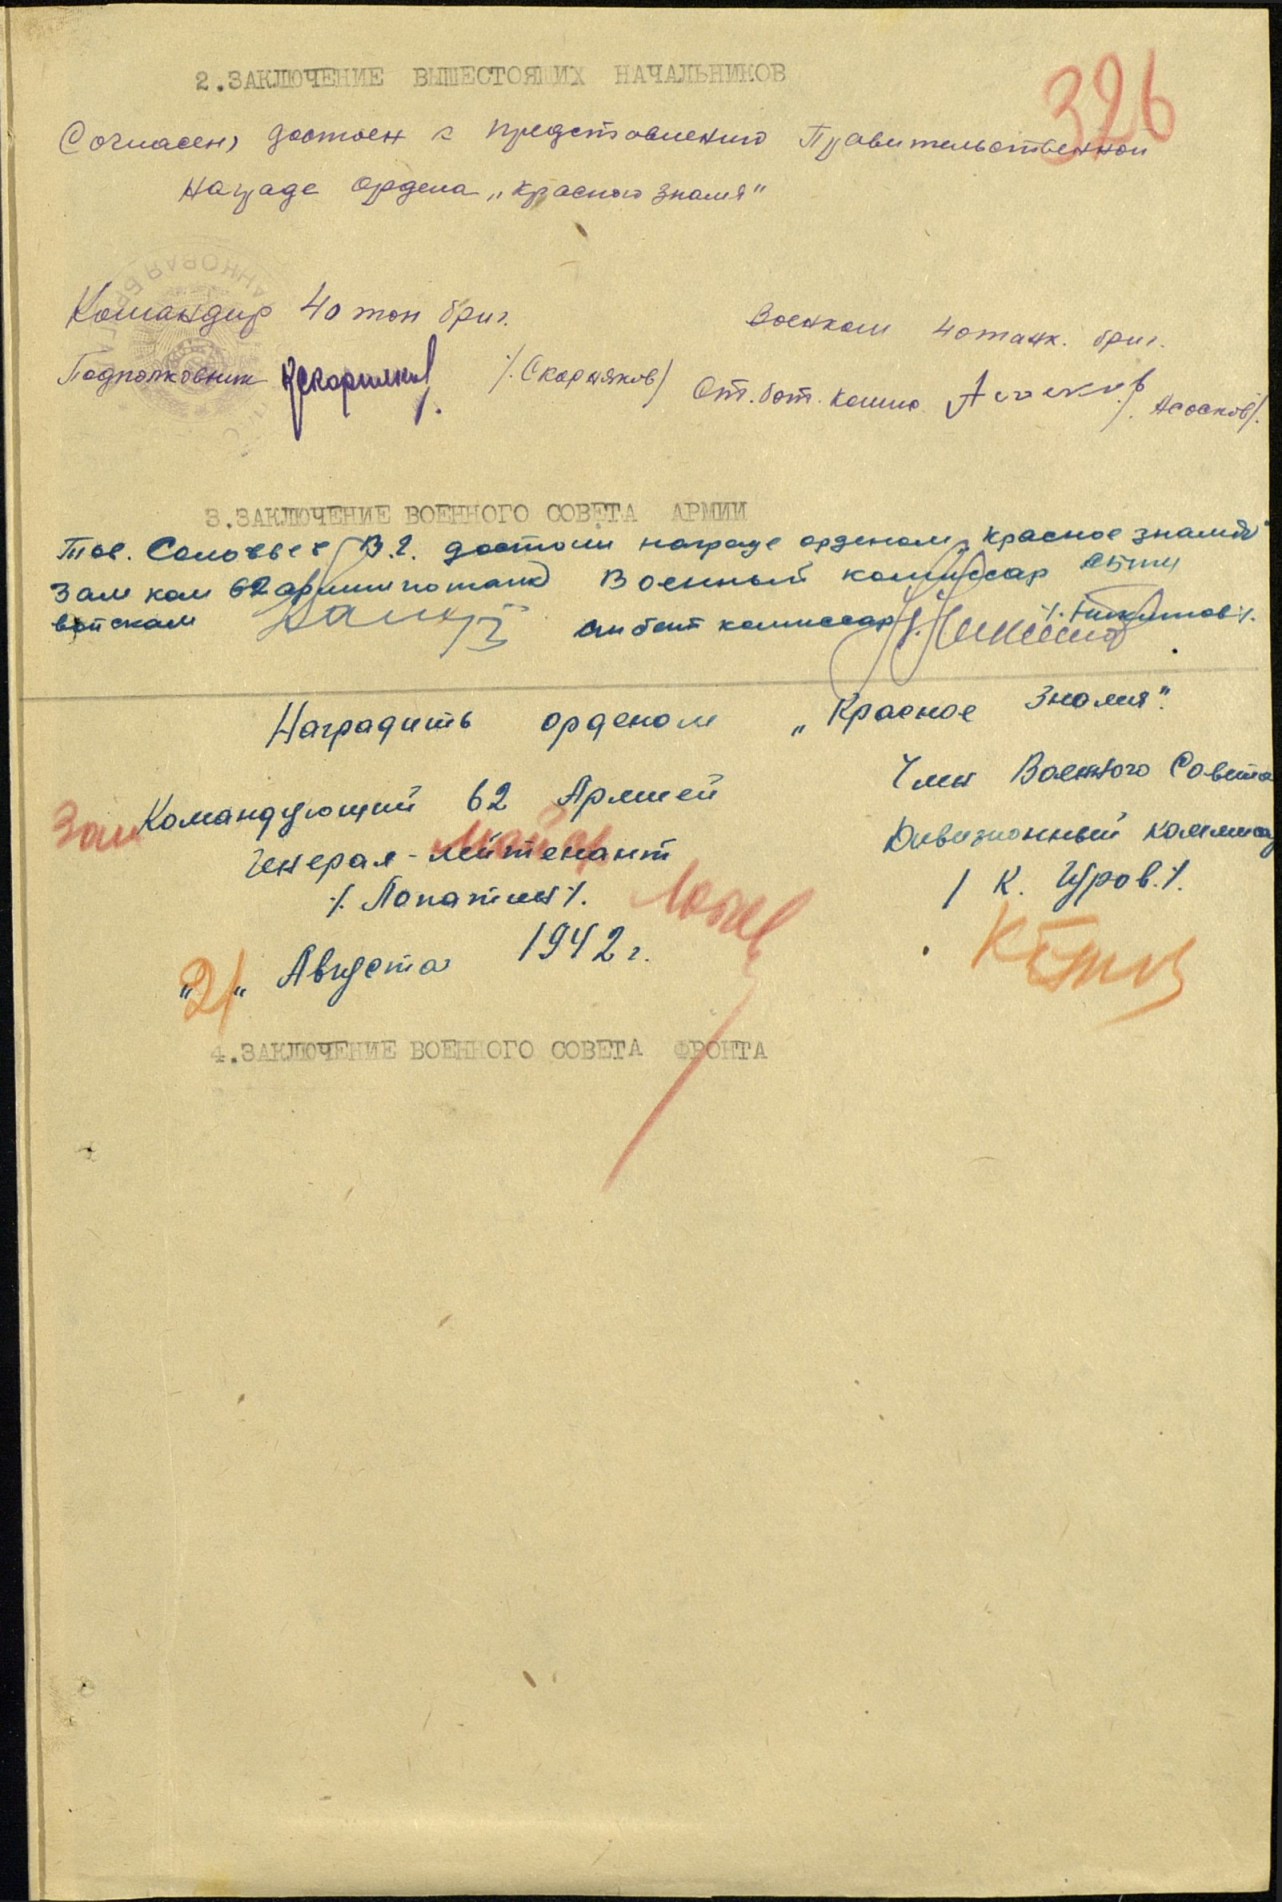 326
2.ЗАКЛЮЧЕНИЕ ВЫШЕСТОЯЩИХ НАЧАЛЬНИКОВ
Согласен, достоен к представлению Правительственной
награде ордена „Красного Знамя"
Командир 40 тан бриг.
Подполковник /.Скорняков/
Военком 40 танк. бриг.
Ст. бат. комис. /. Асосков/.
3.ЗАКЛЮЧЕНИЕ ВОЕННОГО СОВЕТА АРМИИ
Тов. Соловьев В.Г. достоин награде орденом „Красное знамя"
Зам ком 62 армии по танк
войскам
Военный комиссар АБТиМВ
ст бат комиссар /. Никитов /.
Наградить орденом „Красное Знамя".
Зам Командующий 62 Армией
Генерал-лейтенант майор
/. Лопатин /.
Член Военного Совета
Дивизионный комиссар
/ К. Гуров. /.
„21" Августа 1942 г.
4.ЗАКЛЮЧЕНИЕ ВОЕННОГО СОВЕТА ФРОНТА